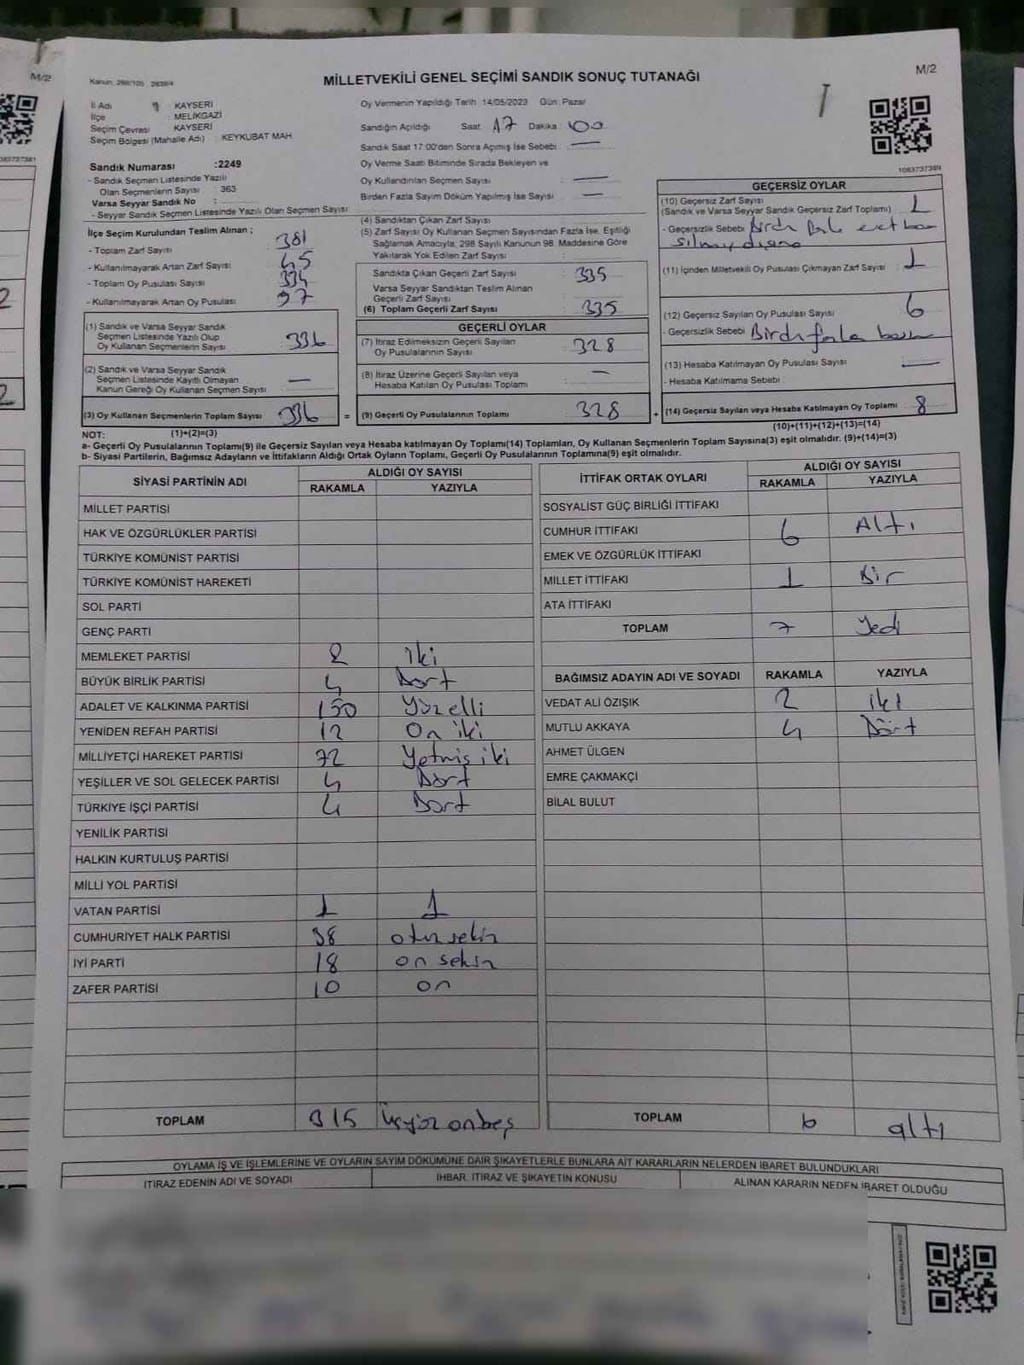 M/2
MİLLETVEKİLİ GENEL SEÇİMİ SANDIK SONUÇ TUTANAĞI
M/2
İl Adı : KAYSERİ
İlçe : MELİKGAZİ
Seçim Çevresi : KAYSERİ
Seçim Bölgesi (Mahalle Adı) : KEYKUBAT MAH.
Sandık Numarası :2249
- Sandık Seçmen Listesinde Yazılı
Olan Seçmenlerin Sayısı : 363
Varsa Seyyar Sandık No :
- Seyyar Sandık Seçmen Listesinde Yazılı Olan Seçmen Sayısı :
İlçe Seçim Kurulundan Teslim Alınan ;
- Toplam Zarf Sayısı : 381
- Kullanılmayarak Artan Zarf Sayısı : 45
- Toplam Oy Pusulası Sayısı : 334
- Kullanılmayarak Artan Oy Pusulası : 97
(1) Sandık ve Varsa Seyyar Sandık
Seçmen Listesinde Yazılı Olup
Oy Kullanan Seçmenlerin Sayısı : 336
(2) Sandık ve Varsa Seyyar Sandık
Seçmen Listesinde Kayıtlı Olmayan
Kanun Gereği Oy Kullanan Seçmen Sayısı : —
(3) Oy Kullanan Seçmenlerin Toplam Sayısı : 336
Oy Vermenin Yapıldığı Tarih :14/05/2023 Gün :Pazar
Sandığın Açıldığı Saat : 17 Dakika : 00
Sandık Saat 17:00'den Sonra Açılmış İse Sebebi : —
Oy Verme Saati Bitiminde Sırada Bekleyen ve
Oy Kullandırılan Seçmen Sayısı : —
Birden Fazla Sayım Döküm Yapılmış İse Sayısı : —
(4) Sandıktan Çıkan Zarf Sayısı :
(5) Zarf Sayısı Oy Kullanan Seçmen Sayısından Fazla İse, Eşitliği
Sağlamak Amacıyla, 298 Sayılı Kanunun 98. Maddesine Göre
Yakılarak Yok Edilen Zarf Sayısı :
Sandıkta Çıkan Geçerli Zarf Sayısı : 335
Varsa Seyyar Sandıktan Teslim Alınan
Geçerli Zarf Sayısı :
(6) Toplam Geçerli Zarf Sayısı : 335
GEÇERLİ OYLAR
(7) İtiraz Edilmeksizin Geçerli Sayılan
Oy Pusulalarının Sayısı : 328
(8) İtiraz Üzerine Geçerli Sayılan veya
Hesaba Katılan Oy Pusulası Toplamı : —
= (9) Geçerli Oy Pusulalarının Toplamı : 328
1083737389
GEÇERSİZ OYLAR
(10) Geçersiz Zarf Sayısı
(Sandık ve Varsa Seyyar Sandık Geçersiz Zarf Toplamı) : 1
- Geçersizlik Sebebi :
(11) İçinden Milletvekili Oy Pusulası Çıkmayan Zarf Sayısı : 1
(12) Geçersiz Sayılan Oy Pusulası Sayısı : 6
- Geçersizlik Sebebi :
(13) Hesaba Katılmayan Oy Pusulası Sayısı : —
- Hesaba Katılmama Sebebi :
+ (14) Geçersiz Sayılan veya Hesaba Katılmayan Oy Toplamı : 8
NOT: (1)+(2)=(3)
(10)+(11)+(12)+(13)=(14)
a- Geçerli Oy Pusulalarının Toplamı(9) ile Geçersiz Sayılan veya Hesaba katılmayan Oy Toplamı(14) Toplamları, Oy Kullanan Seçmenlerin Toplam Sayısına(3) eşit olmalıdır. (9)+(14)=(3)
b- Siyasi Partilerin, Bağımsız Adayların ve İttifakların Aldığı Ortak Oyların Toplamı, Geçerli Oy Pusulalarının Toplamına(9) eşit olmalıdır.
SİYASİ PARTİNİN ADI ALDIĞI OY SAYISI
RAKAMLA YAZIYLA
MİLLET PARTİSİ
HAK VE ÖZGÜRLÜKLER PARTİSİ
TÜRKİYE KOMÜNİST PARTİSİ
TÜRKİYE KOMÜNİST HAREKETİ
SOL PARTİ
GENÇ PARTİ
MEMLEKET PARTİSİ 2 iki
BÜYÜK BİRLİK PARTİSİ 4 Dört
ADALET VE KALKINMA PARTİSİ 150 Yüzelli
YENİDEN REFAH PARTİSİ 12 On iki
MİLLİYETÇİ HAREKET PARTİSİ 72 Yetmiş iki
YEŞİLLER VE SOL GELECEK PARTİSİ 4 Dört
TÜRKİYE İŞÇİ PARTİSİ 4 Dört
YENİLİK PARTİSİ
HALKIN KURTULUŞ PARTİSİ
MİLLİ YOL PARTİSİ
VATAN PARTİSİ 1 1
CUMHURİYET HALK PARTİSİ 38 otuz sekiz
İYİ PARTİ 18 on sekiz
ZAFER PARTİSİ 10 on
TOPLAM 315 üçyüz onbeş
İTTİFAK ORTAK OYLARI ALDIĞI OY SAYISI
RAKAMLA YAZIYLA
SOSYALİST GÜÇ BİRLİĞİ İTTİFAKI
CUMHUR İTTİFAKI 6 Altı
EMEK VE ÖZGÜRLÜK İTTİFAKI
MİLLET İTTİFAKI 1 Bir
ATA İTTİFAKI
TOPLAM 7 Yedi
BAĞIMSIZ ADAYIN ADI VE SOYADI RAKAMLA YAZIYLA
VEDAT ALİ ÖZIŞIK 2 iki
MUTLU AKKAYA 4 Dört
AHMET ÜLGEN
EMRE ÇAKMAKÇI
BİLAL BULUT
TOPLAM 6 altı
OYLAMA İŞ VE İŞLEMLERİNE VE OYLARIN SAYIM DÖKÜMÜNE DAİR ŞİKAYETLERLE BUNLARA AİT KARARLARIN NELERDEN İBARET BULUNDUKLARI
İTİRAZ EDENİN ADI VE SOYADI İHBAR, İTİRAZ VE ŞİKAYETİN KONUSU ALINAN KARARIN NEDEN İBARET OLDUĞU